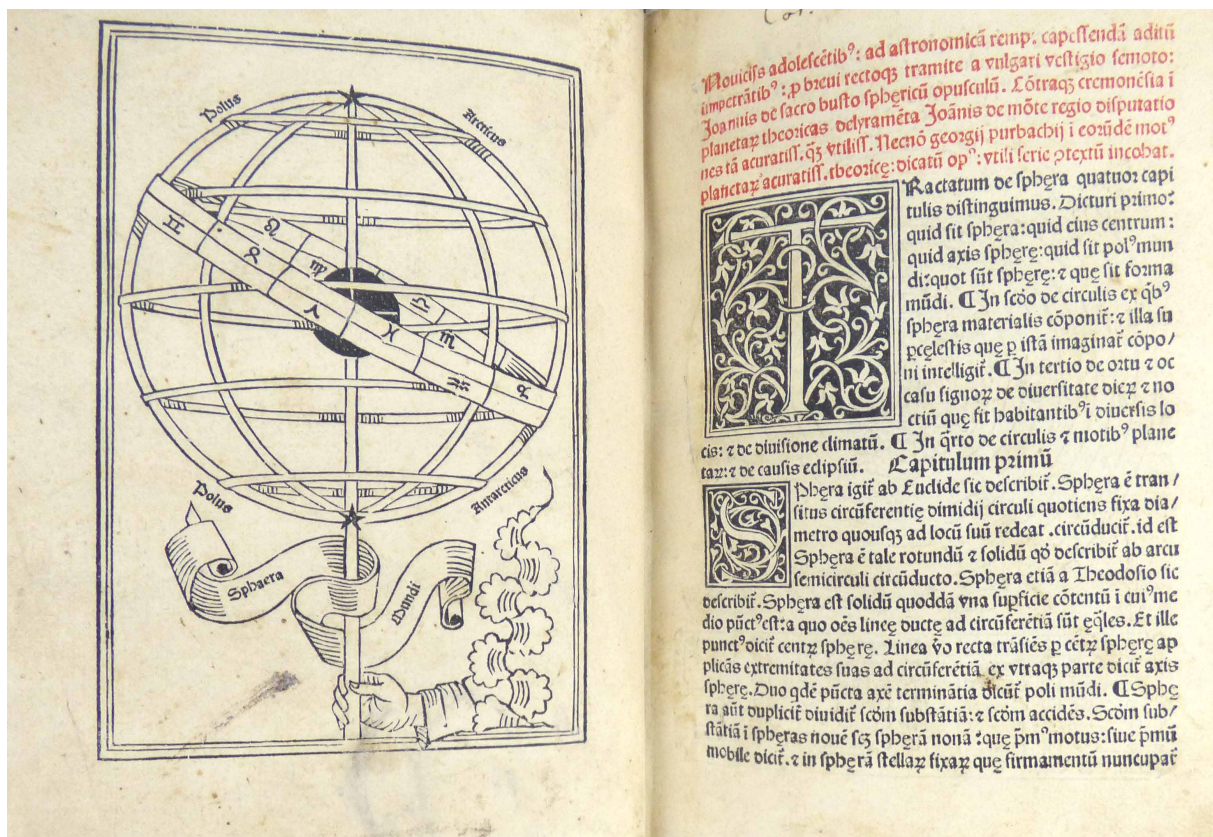 Polus
Arcticus
♊ ♉ ♈ ♓ ♒ ♑
♌ ♍ ♎ ♏
Polus
Antarcticus
Sphaera
Mundi
Nouicijs adolescētibꝰ: ad astronomicā remp: capessendā aditū
impetrātibꝰ: ꝓ breui rectoqꝫ tramite a vulgari vestigio semoto:
Joannis de sacro busto sphęricū opusculū. Cōtraqꝫ cremonēsia ī
planetaꝝ theoricas delyramēta Joānis de mōte regio disputatio
nes tā acuratiss. qꝫ vtiliss. Necnō georgij purbachij ī eorūdē motꝰ
planetaꝝ acuratiss. theoricę: dicatū opꝰ: vtili serie ꝯtextū incohat.
TRactatum de sphęra quatuor capi
tulis distinguimus. Dicturi primo:
quid sit sphęra: quid eius centrum:
quid axis sphęrę: quid sit polꝰ mun
di: quot sūt sphęrę: ⁊ quę sit forma
mūdi. ¶ In scďo de circulis ex q̄bꝰ
sphęra materialis cōponit̄: ⁊ illa su
ꝑcęlestis que ꝑ istā imaginat̄ cōpo/
ni intelligit̄. ¶ In tertio de ortu ⁊ oc
casu signoꝝ de diuersitate dieꝝ ⁊ no
ctiū quę fit habitantibꝰ ī diuersis lo
cis: ⁊ de diuisione climatū. ¶ In q̄rto de circulis ⁊ motibꝰ plane
taꝝ: ⁊ de causis eclipsiū. Capitulum primū
SPhęra igit̄ ab Euclide sic describit̄. Sphęra ē tran/
situs circūferentię dimidij circuli quotiens fixa dia/
metro quousqꝫ ad locū suū redeat .circūducit̄. id est
Sphęra ē tale rotundū ⁊ solidū qď describit̄ ab arcu
semicirculi circūducto. Sphęra etiā a Theodosio sic
describit̄. Sphęra est solidū quoddā vna suꝑficie cōtentū ī cuiꝰ me
dio pūctꝰ est: a quo oēs lineę ductę ad circūferētiā sūt ęq̄les. Et ille
punctꝰ dicit̄ centꝝ sphęrę. Linea v̊o recta trāsiēs ꝑ cētꝝ sphęrę ap
plicās extremitates suas ad circūferētiā ex vtraqꝫ parte dicit̄ axis
sphęrę. Duo qdē pūcta axē terminātia dicūt̄ poli mūdi. ¶ Sphę
ra aūt duplicit̄ diuidit̄ scďm substātiā: ⁊ scďm accidēs. Scďm sub/
stātiā ī spheras nouē scꝫ sphęrā nonā: quę p̄mꝰ motus: siue p̄mū
mobile dicit̄. ⁊ in sphęrā stellaꝝ fixaꝝ quę firmamentū nuncupat̄